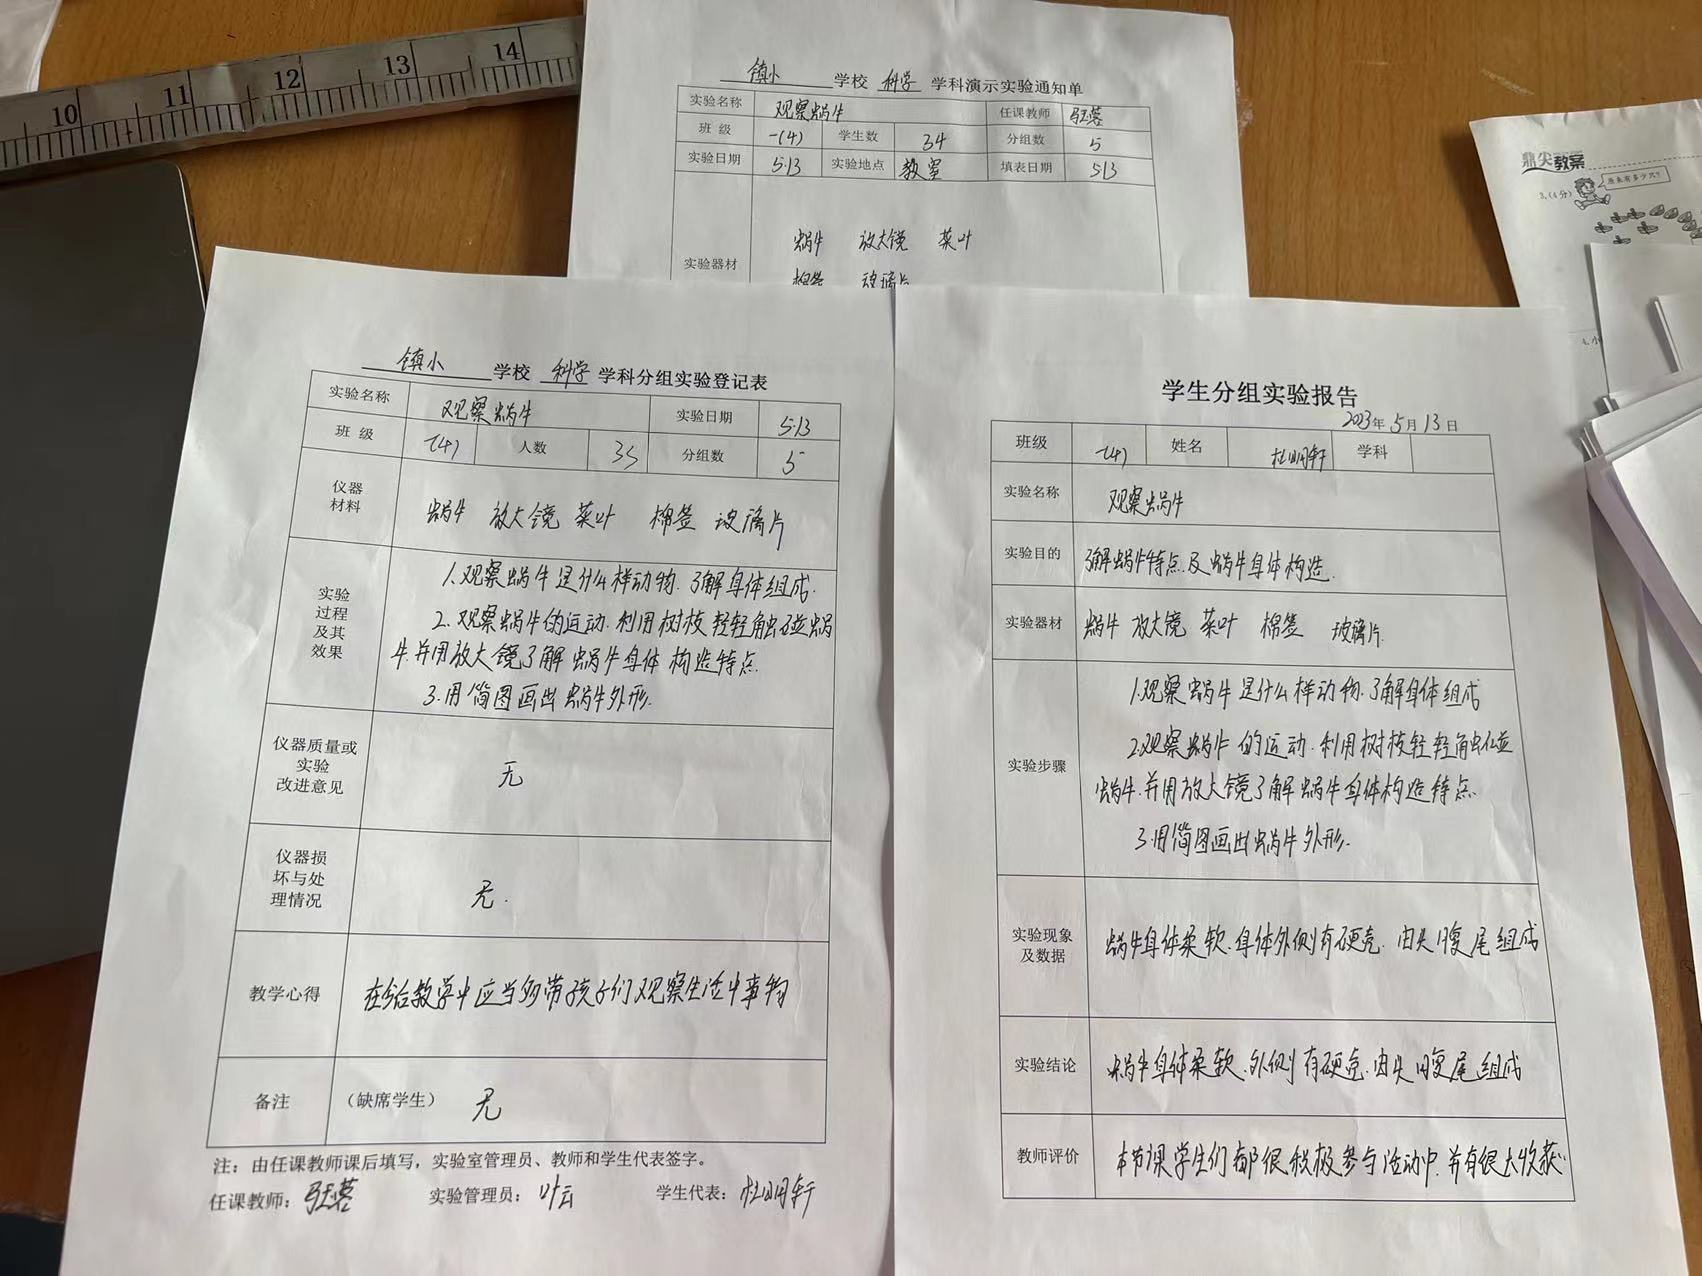 10 11 12 13 14
镇小 学校 科学 学科演示实验通知单
实验名称 观察蜗牛 任课教师
班 级 一(4) 学生数 34 分组数 5
实验日期 5.13 实验地点 教室 填表日期 5.13
实验器材
蜗牛 放大镜 菜叶
棉签 玻璃片
鼎尖教案
3.(4分)
原来有多少只?
镇小 学校 科学 学科分组实验登记表
实验名称 观察蜗牛 实验日期 5.13
班 级 一(4) 人数 35 分组数 5
仪器
材料
蜗牛 放大镜 菜叶 棉签 玻璃片
实验
过程
及其
效果
1.观察蜗牛是什么样动物.了解身体组成.
2.观察蜗牛的运动.利用树枝轻轻触碰蜗
牛.并用放大镜了解蜗牛身体构造特点.
3.用简图画出蜗牛外形.
仪器质量或
实验
改进意见
无
仪器损
坏与处
理情况
无.
教学心得 在今后教学中应当多带孩子们观察生活中事物
备注 (缺席学生) 无
注:由任课教师课后填写,实验室管理员、教师和学生代表签字。
任课教师: 实验管理员:叶云 学生代表:
学生分组实验报告
2023年5月13日
班级 一(4) 姓名 学科
实验名称 观察蜗牛
实验目的 了解蜗牛特点及蜗牛身体构造.
实验器材 蜗牛 放大镜 菜叶 棉签 玻璃片.
实验步骤
1.观察蜗牛是什么样动物.了解身体组成
2.观察蜗牛的运动.利用树枝轻轻触碰
蜗牛.并用放大镜了解蜗牛身体构造特点.
3.用简图画出蜗牛外形.
实验现象
及数据
蜗牛身体柔软.身体外侧有硬壳.由头腹尾组成
实验结论 蜗牛身体柔软.外侧有硬壳.由头腹尾组成
教师评价 本节课学生们都很积极参与活动中.并有很大收获.